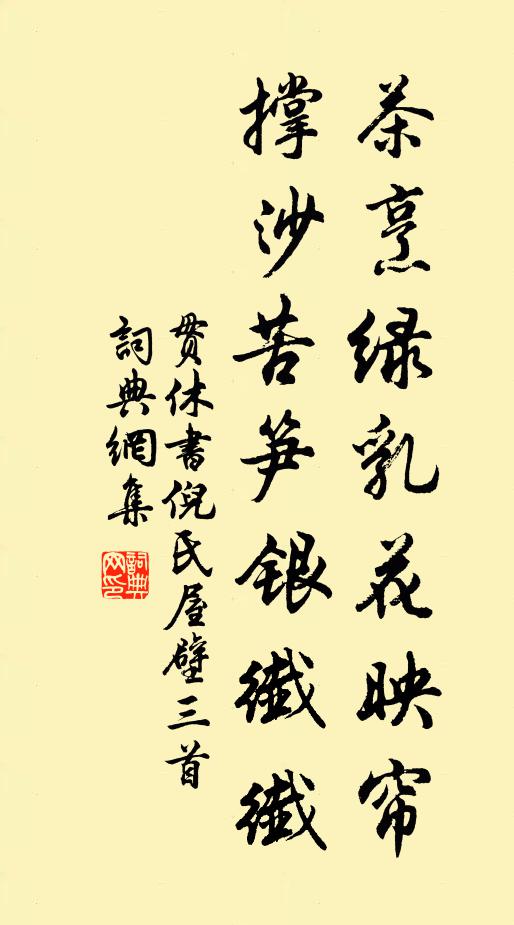 茶烹绿乳花映帘
撑沙苦笋银纖纖
贯休書倪氏屋壁三首
詞典網集
詞典網印